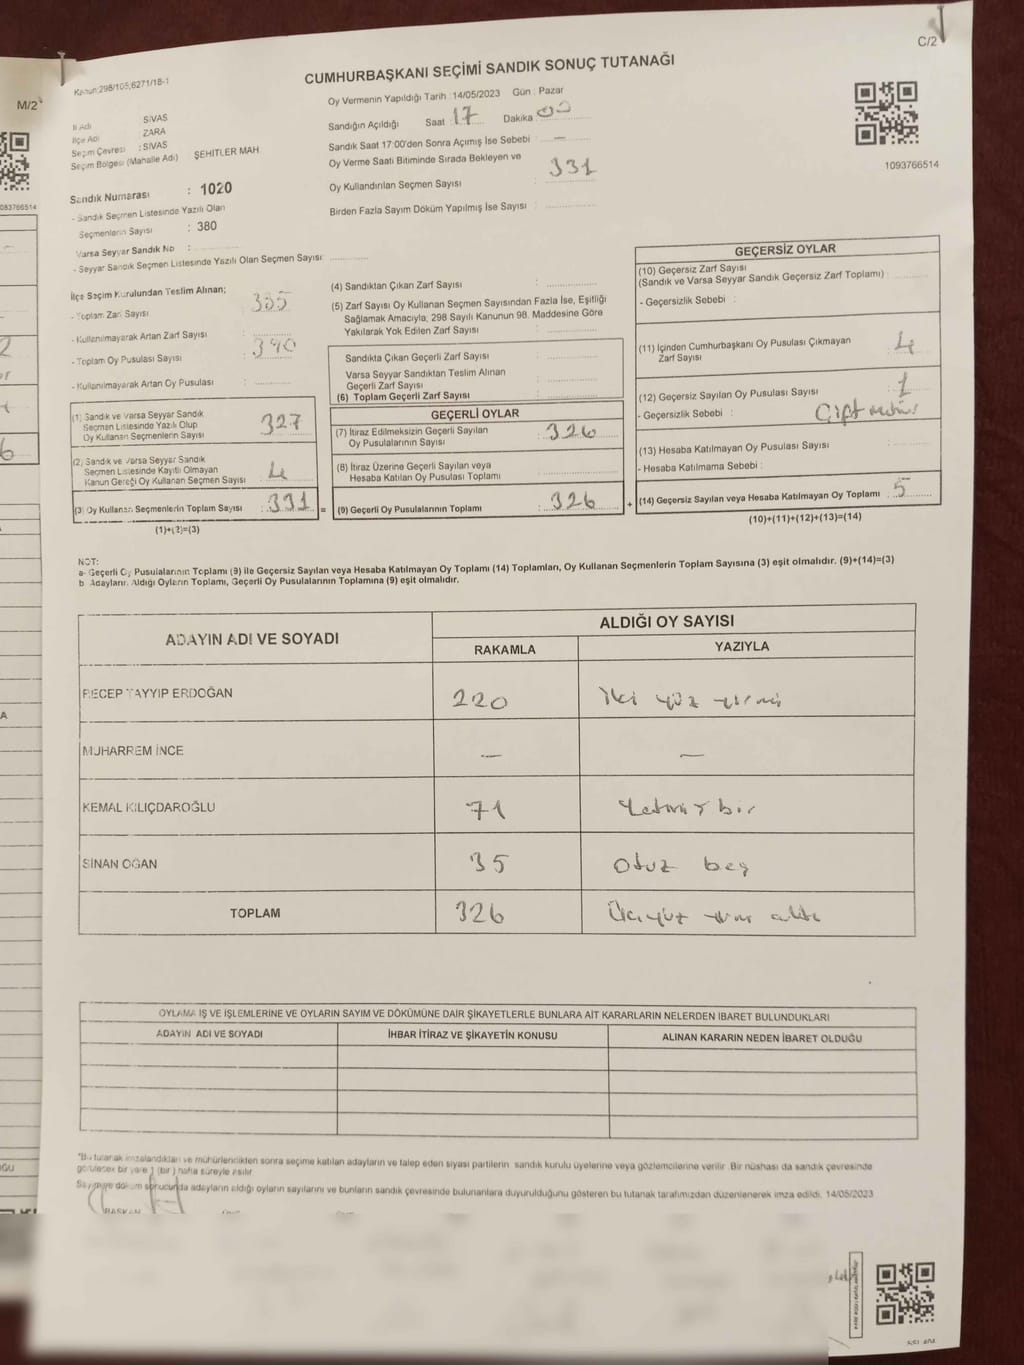 C/2
M/2
Kanun:298/105,6271/18-1
CUMHURBAŞKANI SEÇİMİ SANDIK SONUÇ TUTANAĞI
İl Adı SİVAS
İlçe Adı ZARA
Seçim Çevresi : SİVAS
Seçim Bölgesi (Mahalle Adı) ŞEHİTLER MAH.
Sandık Numarası : 1020
- Sandık Seçmen Listesinde Yazılı Olan
Seçmenlerin Sayısı : 380
Varsa Seyyar Sandık No :
- Seyyar Sandık Seçmen Listesinde Yazılı Olan Seçmen Sayısı:
Oy Vermenin Yapıldığı Tarih :14/05/2023 Gün : Pazar
Sandığın Açıldığı Saat 17 Dakika 00
Sandık Saat 17:00'den Sonra Açımış İse Sebebi —
Oy Verme Saati Bitiminde Sırada Bekleyen ve
Oy Kullandırılan Seçmen Sayısı : 331
Birden Fazla Sayım Döküm Yapılmış İse Sayısı :
1093766514
083766514
İlçe Seçim Kurulundan Teslim Alınan;
- Toplam Zarf Sayısı : 385
- Kullanılmayarak Artan Zarf Sayısı :
- Toplam Oy Pusulası Sayısı : 390
- Kullanılmayarak Artan Oy Pusulası :
(1) Sandık ve Varsa Seyyar Sandık
Seçmen Listesinde Yazılı Olup
Oy Kullanan Seçmenlerin Sayısı : 327
(2) Sandık ve Varsa Seyyar Sandık
Seçmen Listesinde Kayıtlı Olmayan
Kanun Gereği Oy Kullanan Seçmen Sayısı : 4
(3) Oy Kullanan Seçmenlerin Toplam Sayısı : 331 =
(1)+(2)=(3)
(4) Sandıktan Çıkan Zarf Sayısı :
(5) Zarf Sayısı Oy Kullanan Seçmen Sayısından Fazla İse, Eşitliği
Sağlamak Amacıyla; 298 Sayılı Kanunun 98. Maddesine Göre
Yakılarak Yok Edilen Zarf Sayısı :
Sandıkta Çıkan Geçerli Zarf Sayısı :
Varsa Seyyar Sandıktan Teslim Alınan
Geçerli Zarf Sayısı :
(6) Toplam Geçerli Zarf Sayısı :
GEÇERLİ OYLAR
(7) İtiraz Edilmeksizin Geçerli Sayılan
Oy Pusulalarının Sayısı : 326
(8) İtiraz Üzerine Geçerli Sayılan veya
Hesaba Katılan Oy Pusulası Toplamı :
(9) Geçerli Oy Pusulalarının Toplamı : 326 +
GEÇERSİZ OYLAR
(10) Geçersiz Zarf Sayısı
(Sandık ve Varsa Seyyar Sandık Geçersiz Zarf Toplamı) :
- Geçersizlik Sebebi :
(11) İçinden Cumhurbaşkanı Oy Pusulası Çıkmayan
Zarf Sayısı : 4
(12) Geçersiz Sayılan Oy Pusulası Sayısı : 1
- Geçersizlik Sebebi : Çift mühür
(13) Hesaba Katılmayan Oy Pusulası Sayısı :
- Hesaba Katılmama Sebebi :
(14) Geçersiz Sayılan veya Hesaba Katılmayan Oy Toplamı : 5
(10)+(11)+(12)+(13)=(14)
NOT:
a- Geçerli Oy Pusulalarının Toplamı (9) ile Geçersiz Sayılan veya Hesaba Katılmayan Oy Toplamı (14) Toplamları, Oy Kullanan Seçmenlerin Toplam Sayısına (3) eşit olmalıdır. (9)+(14)=(3)
b Adayların Aldığı Oyların Toplamı, Geçerli Oy Pusulalarının Toplamına (9) eşit olmalıdır.
ADAYIN ADI VE SOYADI ALDIĞI OY SAYISI
RAKAMLA YAZIYLA
RECEP TAYYİP ERDOĞAN 220 İki yüz yirmi
MUHARREM İNCE — —
KEMAL KILIÇDAROĞLU 71 Yetmiş bir
SİNAN OĞAN 35 Otuz beş
TOPLAM 326 Üçyüz yirmi altı
OYLAMA İŞ VE İŞLEMLERİNE VE OYLARIN SAYIM VE DÖKÜMÜNE DAİR ŞİKAYETLERLE BUNLARA AİT KARARLARIN NELERDEN İBARET BULUNDUKLARI
ADAYIN ADI VE SOYADI İHBAR İTİRAZ VE ŞİKAYETİN KONUSU ALINAN KARARIN NEDEN İBARET OLDUĞU
*Bu tutanak imzalandıktan ve mühürlendikten sonra seçime katılan adayların ve talep eden siyasi partilerin sandık kurulu üyelerine veya gözlemcilerine verilir. Bir nüshası da sandık çevresinde
görülecek bir yere 1 (bir) hafta süreyle asılır.
Sayım ve döküm sonucunda adayların aldığı oyların sayılarını ve bunların sandık çevresinde bulunanlara duyurulduğunu gösteren bu tutanak tarafımızdan düzenlenerek imza edildi. 14/05/2023
BAŞKAN